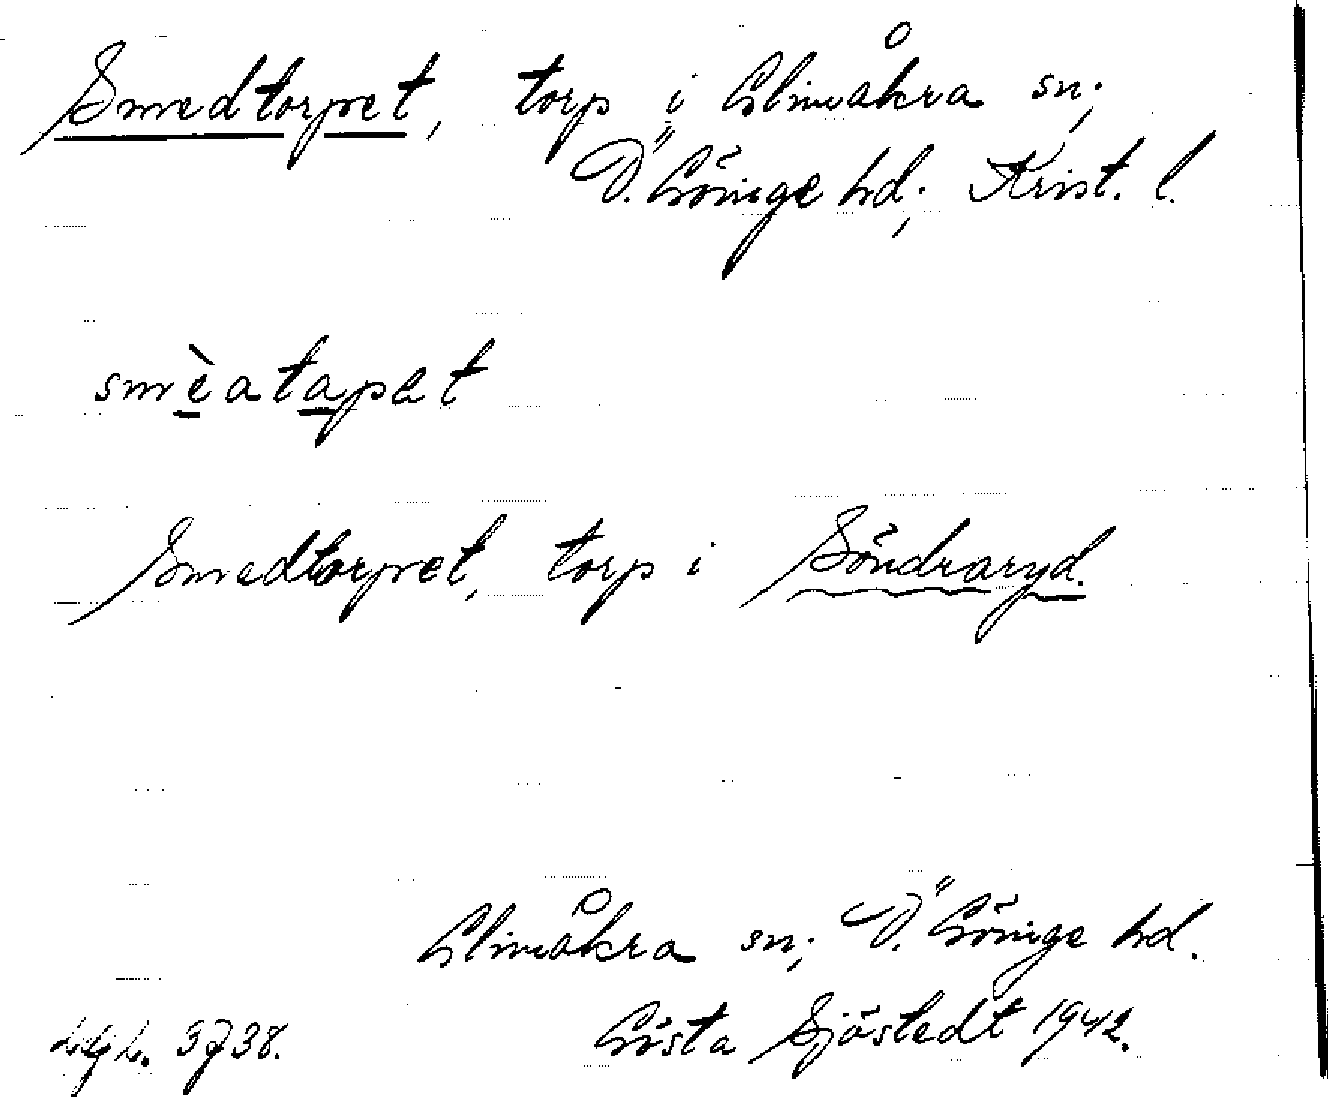 Smedtorpet, torp i Glimåkra sn;
Ö. Göinge hd; Krist. l.
smèatapet
Smedtorpet, torp i Söndraryd.
Glimåkra sn; Ö. Göinge hd.
Gösta Sjöstedt 1942.
3738.